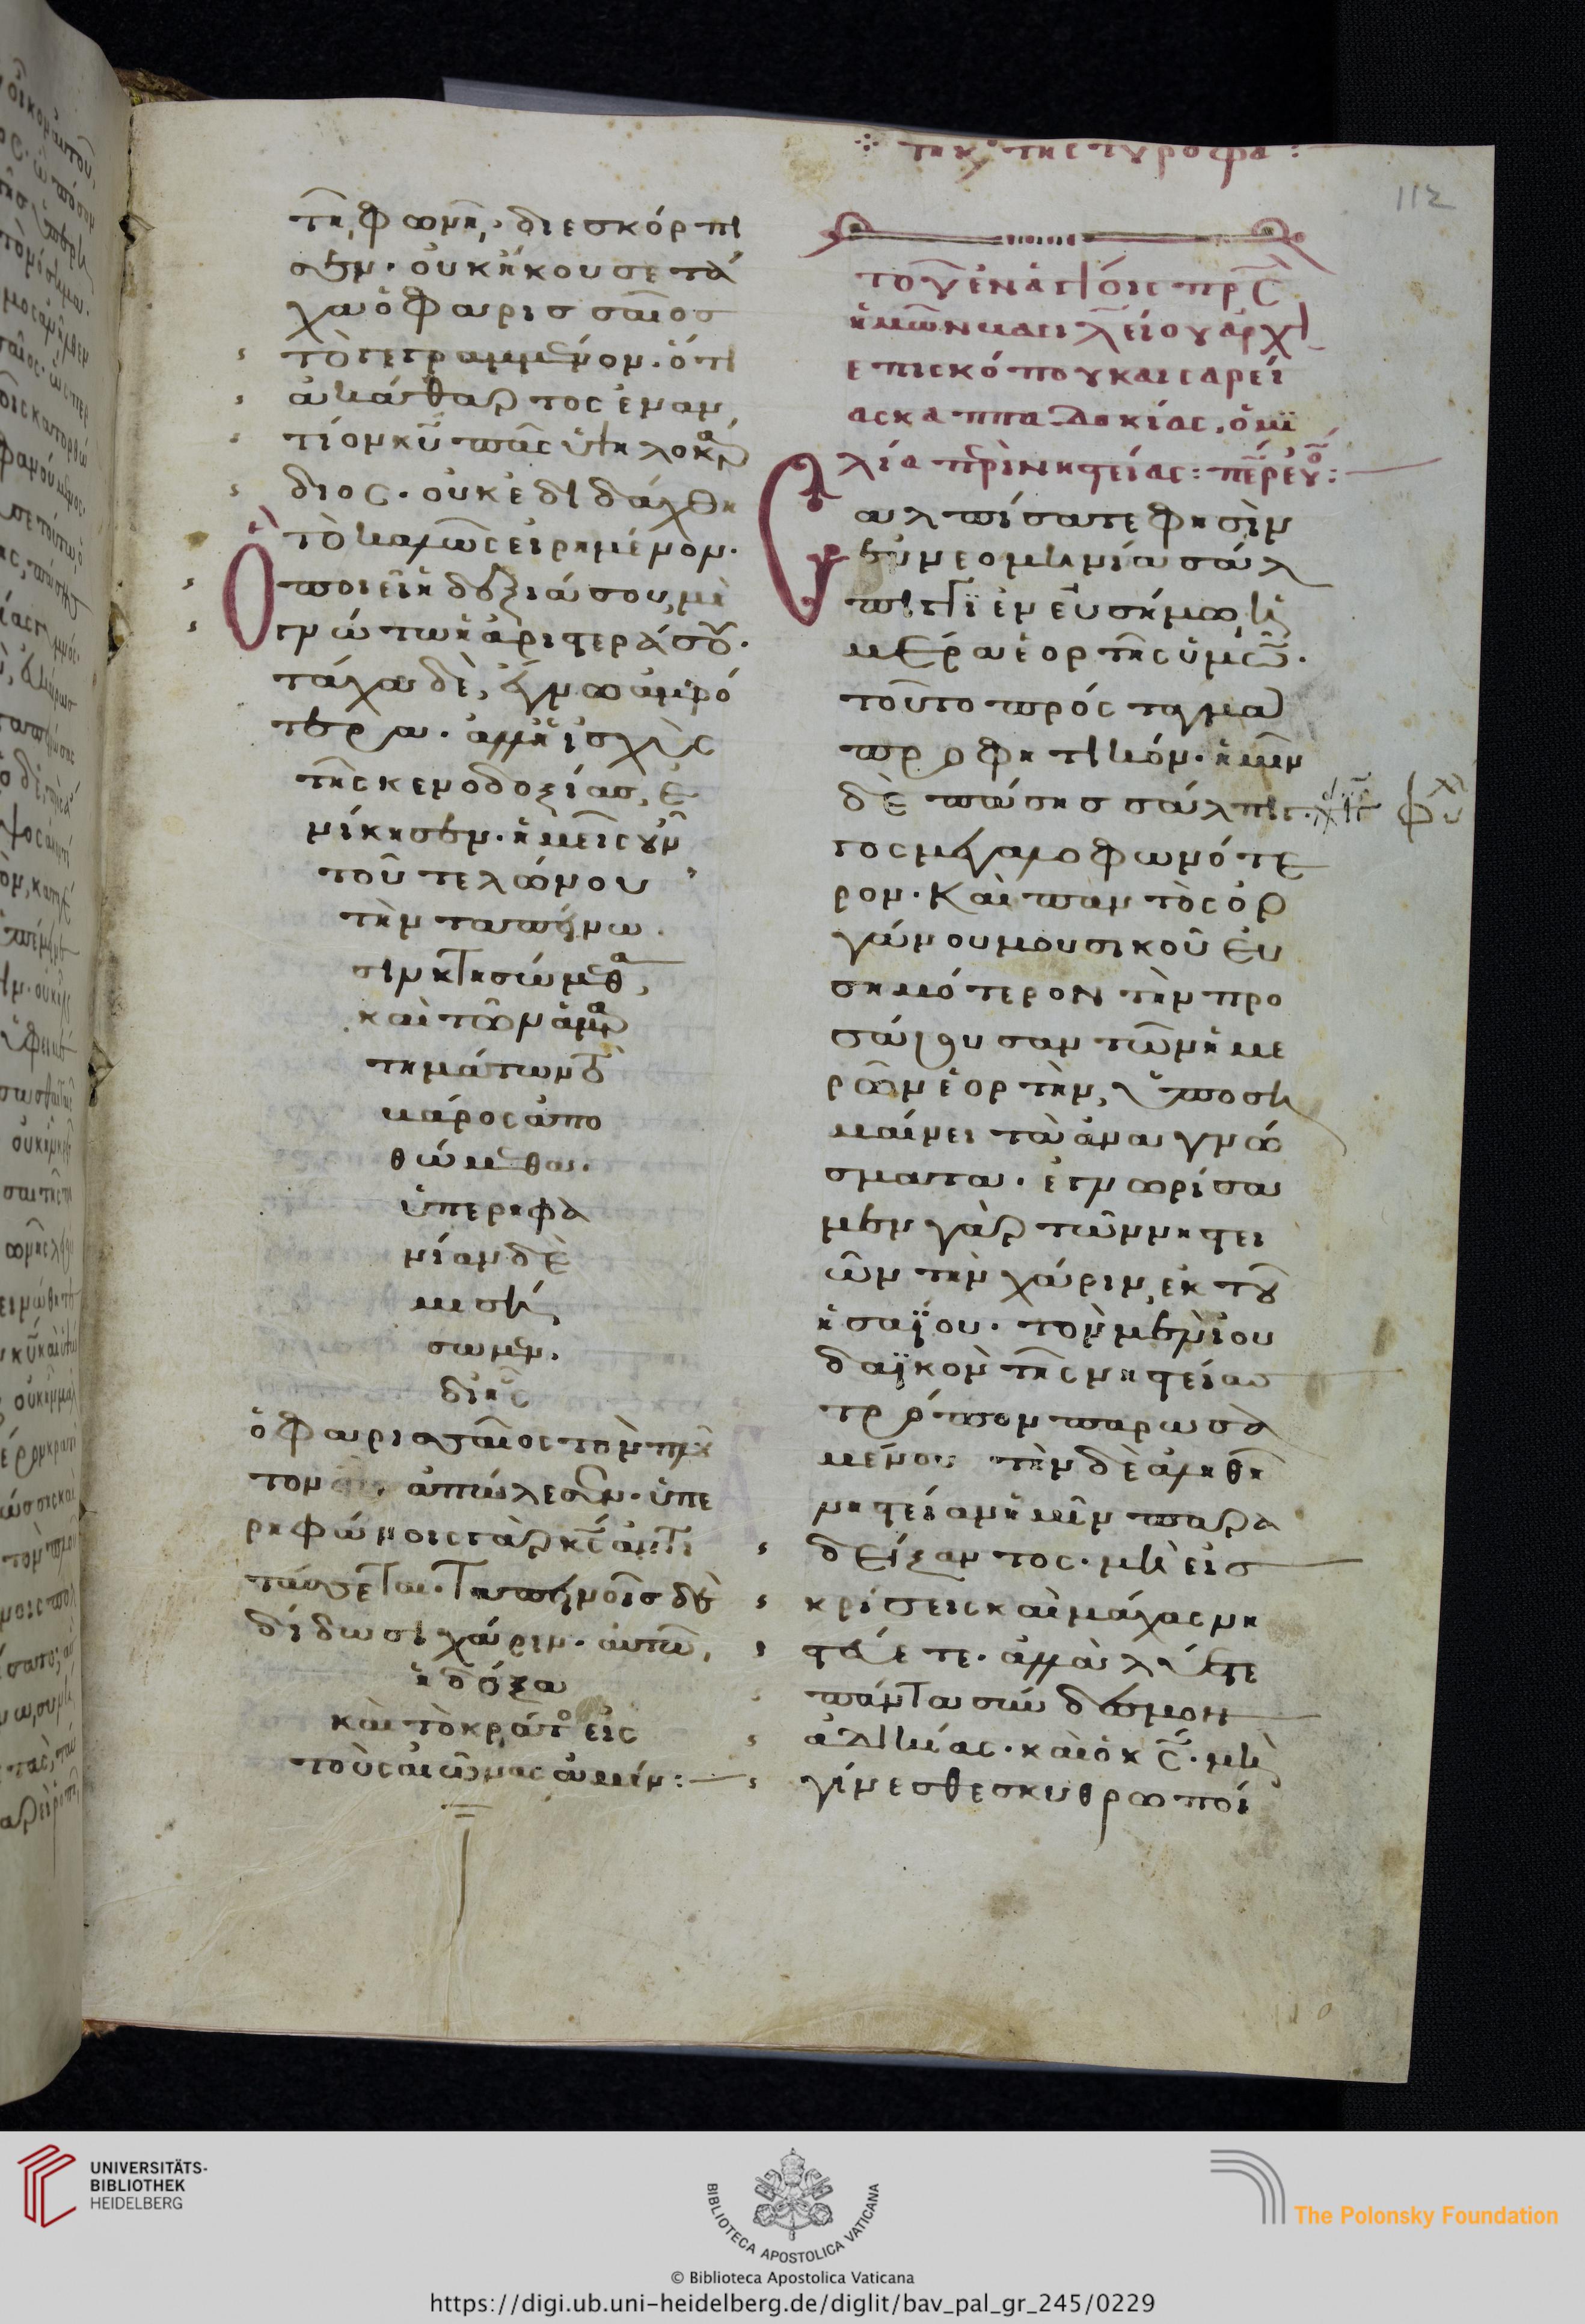 τῆ φωνῆ· διεσκόρπι
σεν· οὐκ ἤκουσε τά
χα ὁ φαρισσαῖος
τὸ γεγραμμένον· ὅτι
ἀκάθαρτος ἐναν
τίον κυ πᾶς ὑψηλοκάρ
διος· οὐκ ἐδιδάχθη
τὸ καλῶς εἰρημένον·
ὃ ποιεῖ ἡ δεξιά σου, μὴ
γνώτω ἡ ἀριστερά σου·
τάχα δὲ, ἔγνω ἀμφό
τερα· ἀλλ' ἡ ἰσχὺς
τῆς κενοδοξίας, ἐ
νίκησεν· ἡμεῖς οὖν
τοῦ τελώνου
τὴν ταπείνω
σιν κτησώμεθα,
καὶ τῶν ἁμαρ
τημάτων τὸ
βάρος ἀπο
θώμεθα·
ὑπερηφα
νίαν δὲ
μισή
σωμεν·
δι' ἧς
ὁ φαρισσαῖος τὸν πλοῦ
τον ἀπώλεσεν· ὑπε
ρηφάνοις γὰρ κς ἀντι
τάσσεται· ταπεινοῖς δὲ
δίδωσι χάριν· αὐτῶ,
ἡ δόξα
καὶ τὸ κράτος εἰς
τοὺς αἰῶνας ἀμήν:
τῆ κυ τῆς τυροφα:
τοῦ ἐν ἁγίοις πρς
ἡμῶν βασιλείου ἀρχι
επισκόπου καισαρεί
ας καππαδοκίας, ὁμι
λία περὶ νηστείας: περ εὐ:
Σαλπίσατε φησὶν
ἐν νεομηνία σάλ
πιγγι ἐν εὐσήμω ἡ
μέρα ἑορτῆς ὑμῶν·
τοῦτο πρόσταγμα
προφητικόν· ἡμῖν
δὲ πάσης σάλπιγ
γος μεγαλοφωνότε
ρον· καὶ παντὸς ὀρ
γάνου μουσικοῦ εὐ
σημότερον τὴν προ
σάγουσαν τῶν ἡμε
ρῶν ἑορτὴν, ὑποση
μαίνει τὰ ἀναγνώ
σματα· ἐγνωρίσα
μεν γὰρ τῶν νηστει
ῶν τὴν χάριν, ἐκ τοῦ
ἡσαΐου· τὸν μὲν ἰου
δαϊκὸν τῆς νηστείας
τρόπον παρωσα
μένου τὴν δὲ ἀληθῆ
νηστείαν ἡμῖν παρα
δείξαντος· μὴ εἰς
κρίσεις καὶ μάχας νη
στεύετε· ἀλλὰ λύετε
πάντα σύνδεσμον
ἀδικίας· καὶ ὁ κς· μὴ
γίνεσθε σκυθρωποί
112
UNIVERSITÄTS-
BIBLIOTHEK
HEIDELBERG
BIBLIOTECA APOSTOLICA VATICANA
The Polonsky Foundation
© Biblioteca Apostolica Vaticana
https://digi.ub.uni-heidelberg.de/diglit/bav_pal_gr_245/0229